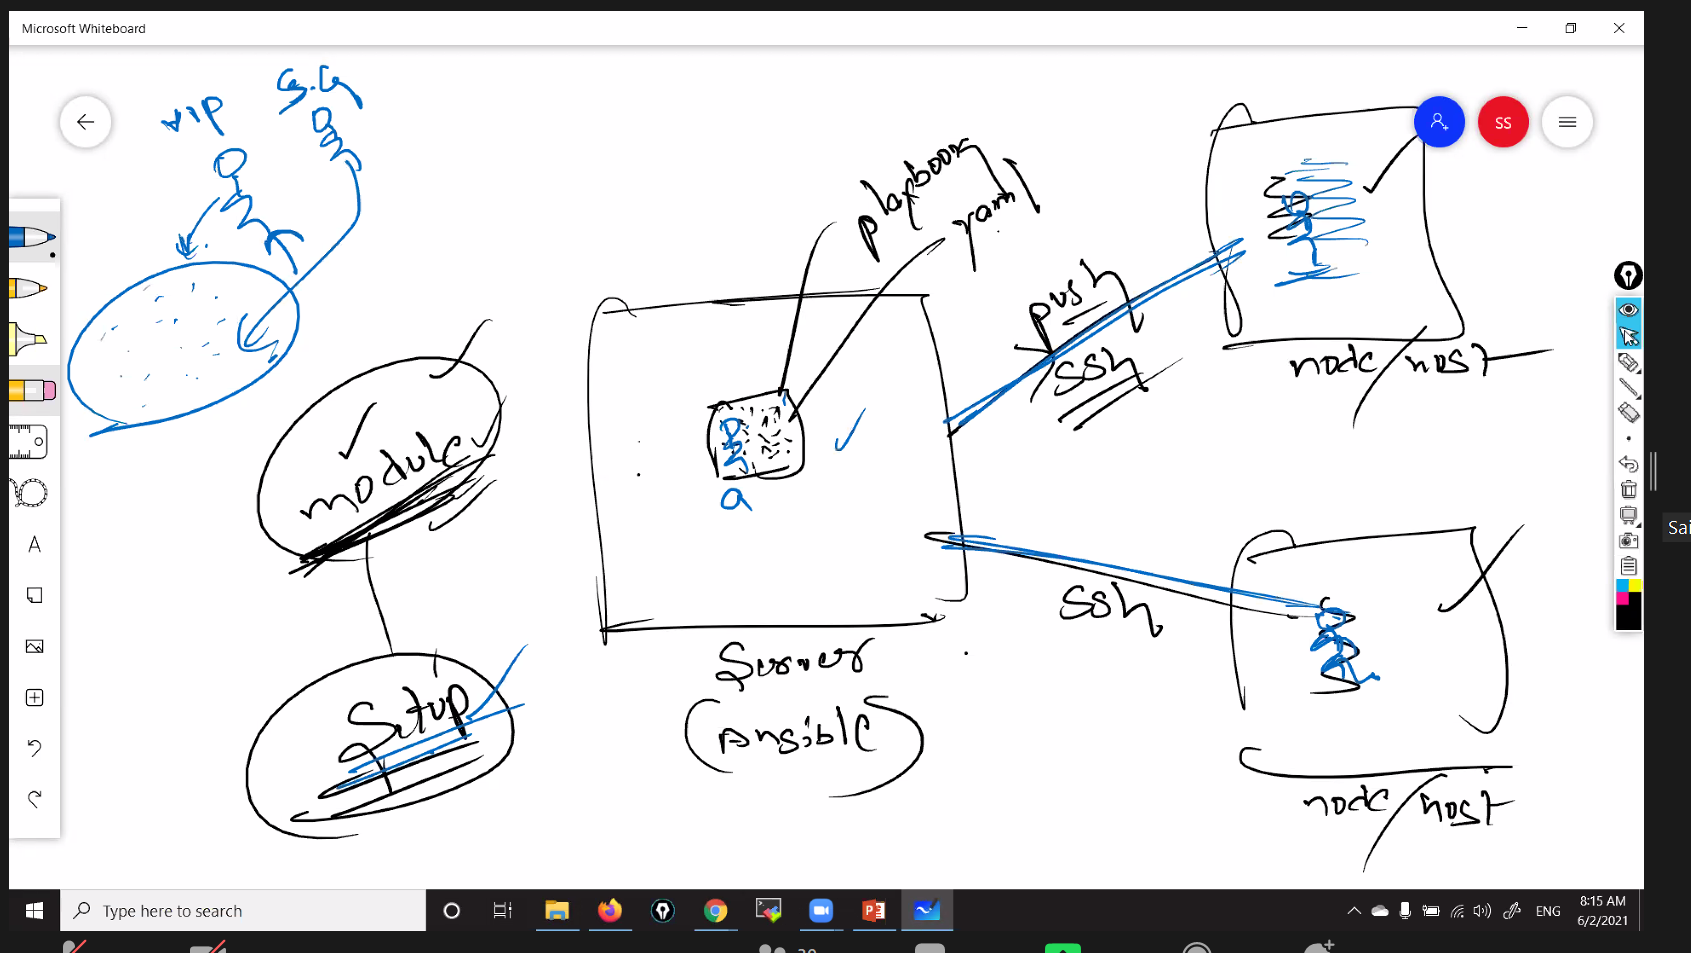 Microsoft Whiteboard
VIP
S.G
playbook
yaml
push
ssh
node/host
module
a
Server
(Ansible)
ssh
Setup
node/host
SS
A
Sai
Type here to search
ENG
8:15 AM
6/2/2021